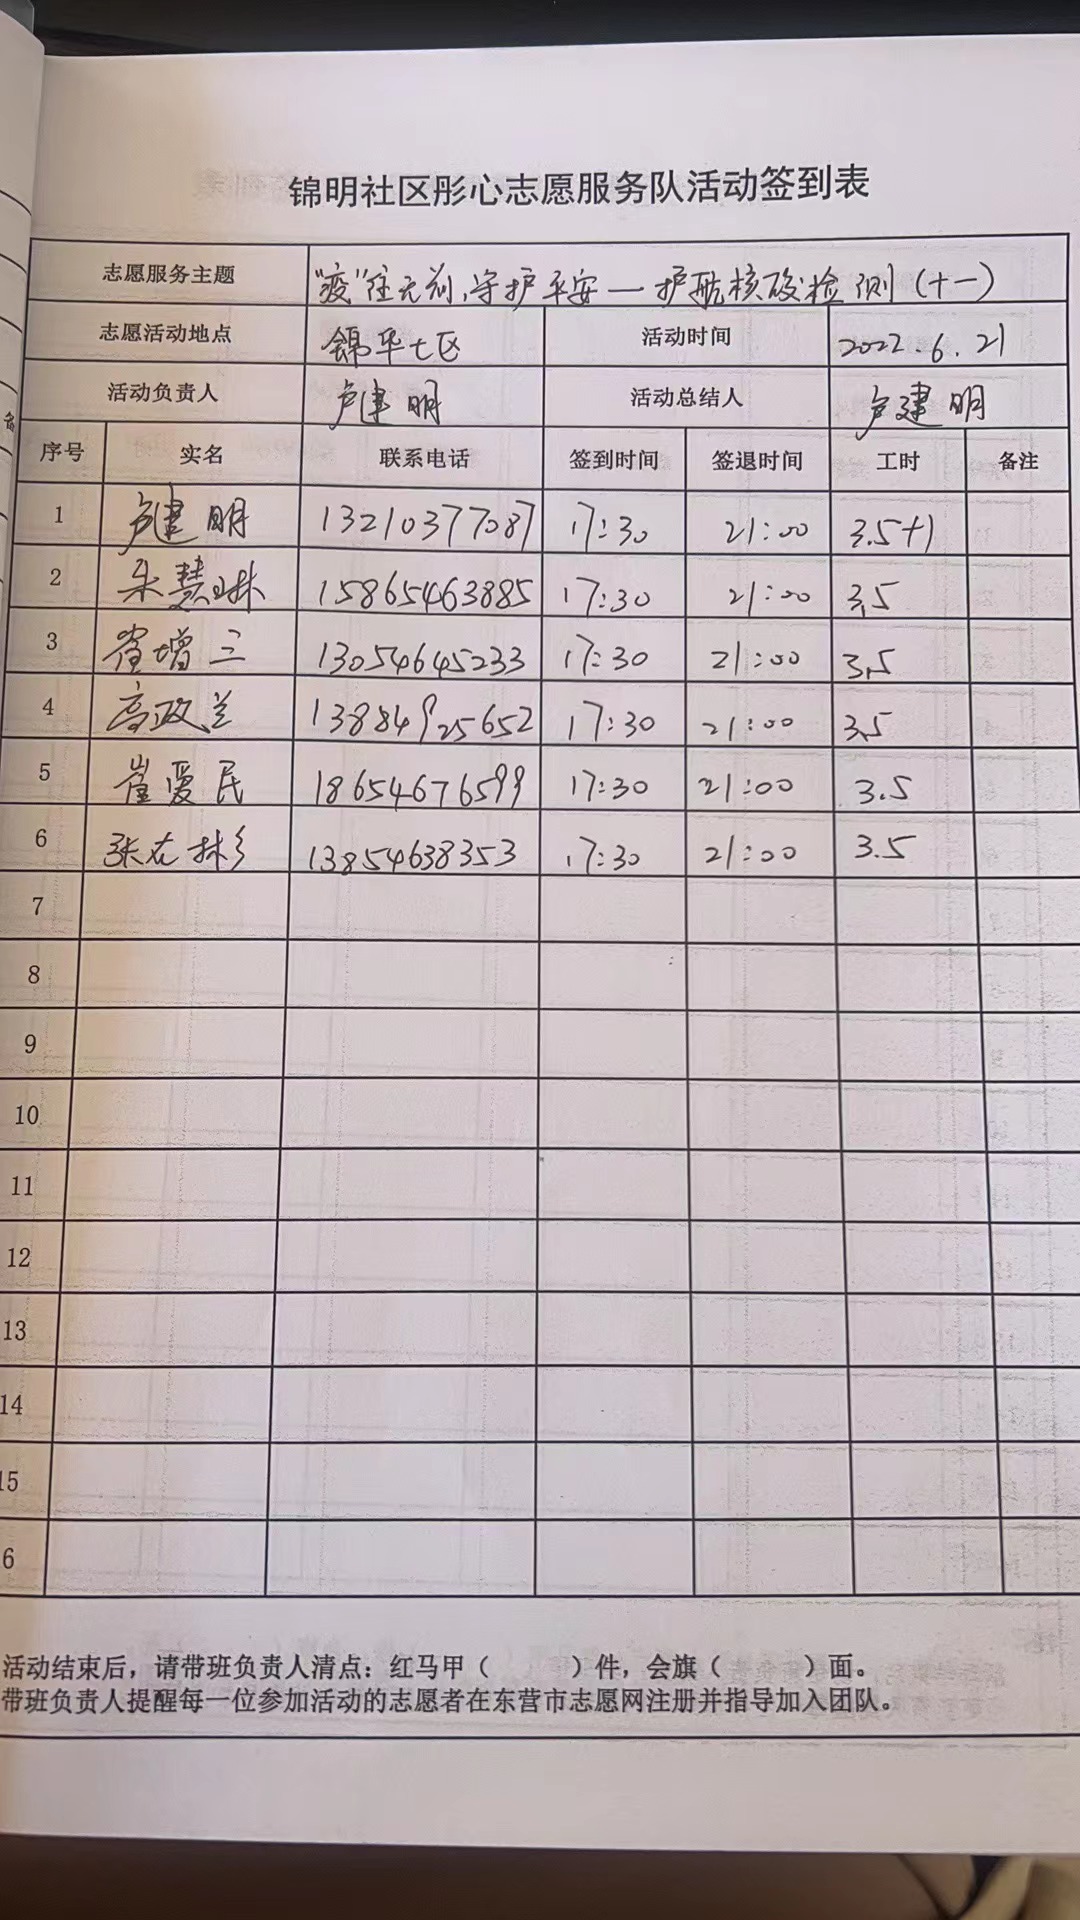 锦明社区彤心志愿服务队活动签到表
志愿服务主题 "疫"往无前,守护平安—护航核酸检测(十一)
志愿活动地点 锦华七区 活动时间 2022.6.21
活动负责人 卢建明 活动总结人 卢建明
序号 实名 联系电话 签到时间 签退时间 工时 备注
1 卢建明 13210377087 17:30 21:00 3.5+1
2 朱慧琳 15865463885 17:30 21:00 3.5
3 崔增三 13054645233 17:30 21:00 3.5
4 高政兰 13884925652 17:30 21:00 3.5
5 崔爱民 18654676599 17:30 21:00 3.5
6 张左彬 13854638353 17:30 21:00 3.5
7
8
9
10
11
12
13
14
15
6
活动结束后，请带班负责人清点：红马甲（ ）件，会旗（ ）面。
带班负责人提醒每一位参加活动的志愿者在东营市志愿网注册并指导加入团队。